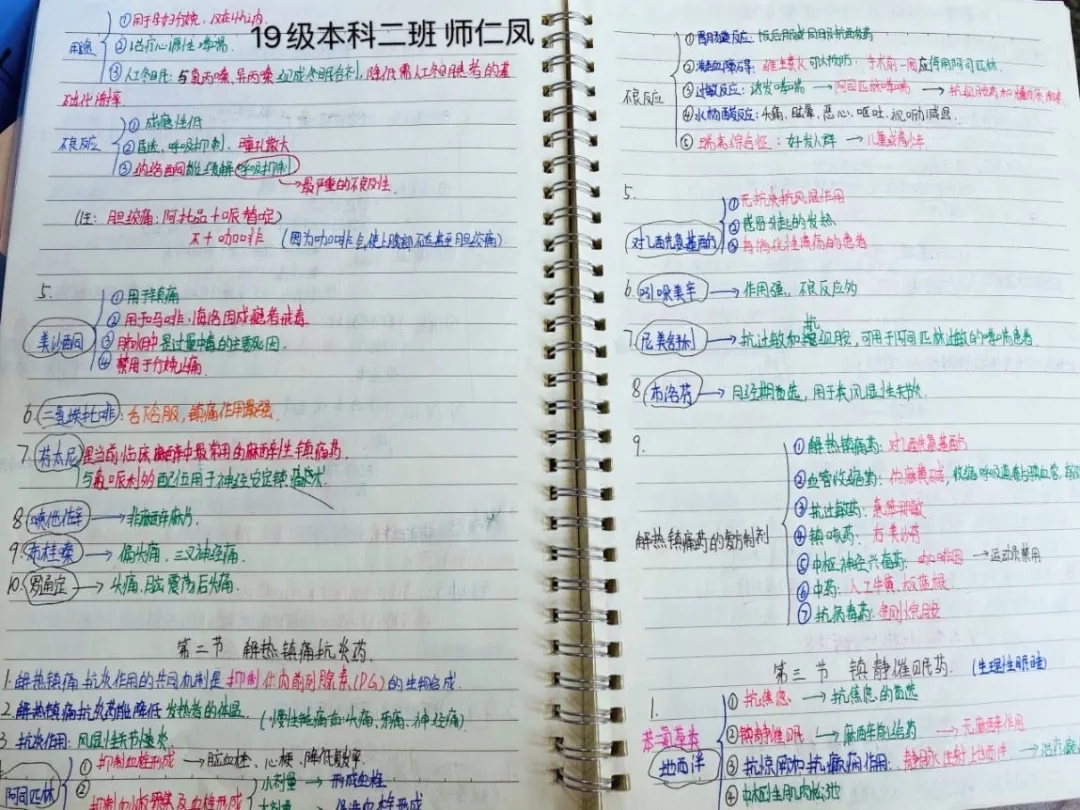 19级本科二班 师仁凤
用途
①用于孕妇分娩，仅在4h内
②治疗心源性哮喘
③人工冬眠：与氯丙嗪、异丙嗪组成冬眠合剂，降低需人工冬眠患者的基
础代谢率
不良反应
①成瘾性低
②呼吸抑制，瞳孔散大
③纳洛酮能缓解呼吸抑制
→最严重的不良反性
(注：胆绞痛：阿托品＋哌替啶)
不＋吗啡
5.
美沙酮
①用于镇痛
②用于吗啡、海洛因成瘾者戒毒
③肺水肿是过量中毒的主要死因
④禁用于分娩止痛
6.二氢埃托啡：舌下含服，镇痛作用最强
7.芬太尼 是当前临床麻醉中最常用的麻醉性镇痛药
与氟哌利多配伍用于神经安定镇痛术
8 →非麻醉麻片
9. →偏头痛、三叉神经痛
10.罗通定→头痛，脑震荡后头痛
第二节 解热镇痛抗炎药
1.解热镇痛抗炎作用的共同机制是抑制体内前列腺素(PG)的生物合成
2.解热镇痛抗炎药能降低发热者的体温 (慢性钝痛如头痛、牙痛、神经痛)
3 抗炎作用：风湿性关节炎
阿司匹林
①抑制血栓形成→脑血栓、心梗、降低
②
小剂量→形成血栓
大剂量→促进血栓形成
不良反应
①胃肠道反应
②凝血障碍：维生素K可以预防，手术前一周应停用阿司匹林
③过敏反应：诱发哮喘→阿司匹林哮喘→
④水杨酸反应：头痛，眩晕，恶心，呕吐，视听减退
⑤瑞夷综合征：好发人群→儿童或青少年
5.
对乙酰氨基酚
①无抗炎抗风湿作用
②感冒引起的发热
③与消化性溃疡的患者
6.吲哚美辛→作用强，不良反应多
7.尼美舒利→抗过敏和抗组胺，可用于阿司匹林过敏的哮喘患者
8 布洛芬→月经期首选，用于类风湿性关节炎
9.
解热镇痛药的复方制剂
①解热镇痛药：对乙酰氨基酚
②血管收缩药：伪麻黄碱，收缩呼吸道粘膜血管，
③抗过敏药：氯苯那敏
④镇咳药：右美沙芬
⑤中枢神经兴奋药：咖啡因→运动员禁用
⑥中药：人工牛黄，板蓝根
⑦抗病毒药：金刚烷胺
第三节 镇静催眠药 (生理性睡眠)
1.
苯二氮䓬类
地西泮
①抗焦虑→抗焦虑的首选
②镇静催眠→麻醉前给药→无麻醉作用
③抗惊厥和抗癫痫作用：静脉注射地西泮→治疗癫
④中枢性肌肉松弛